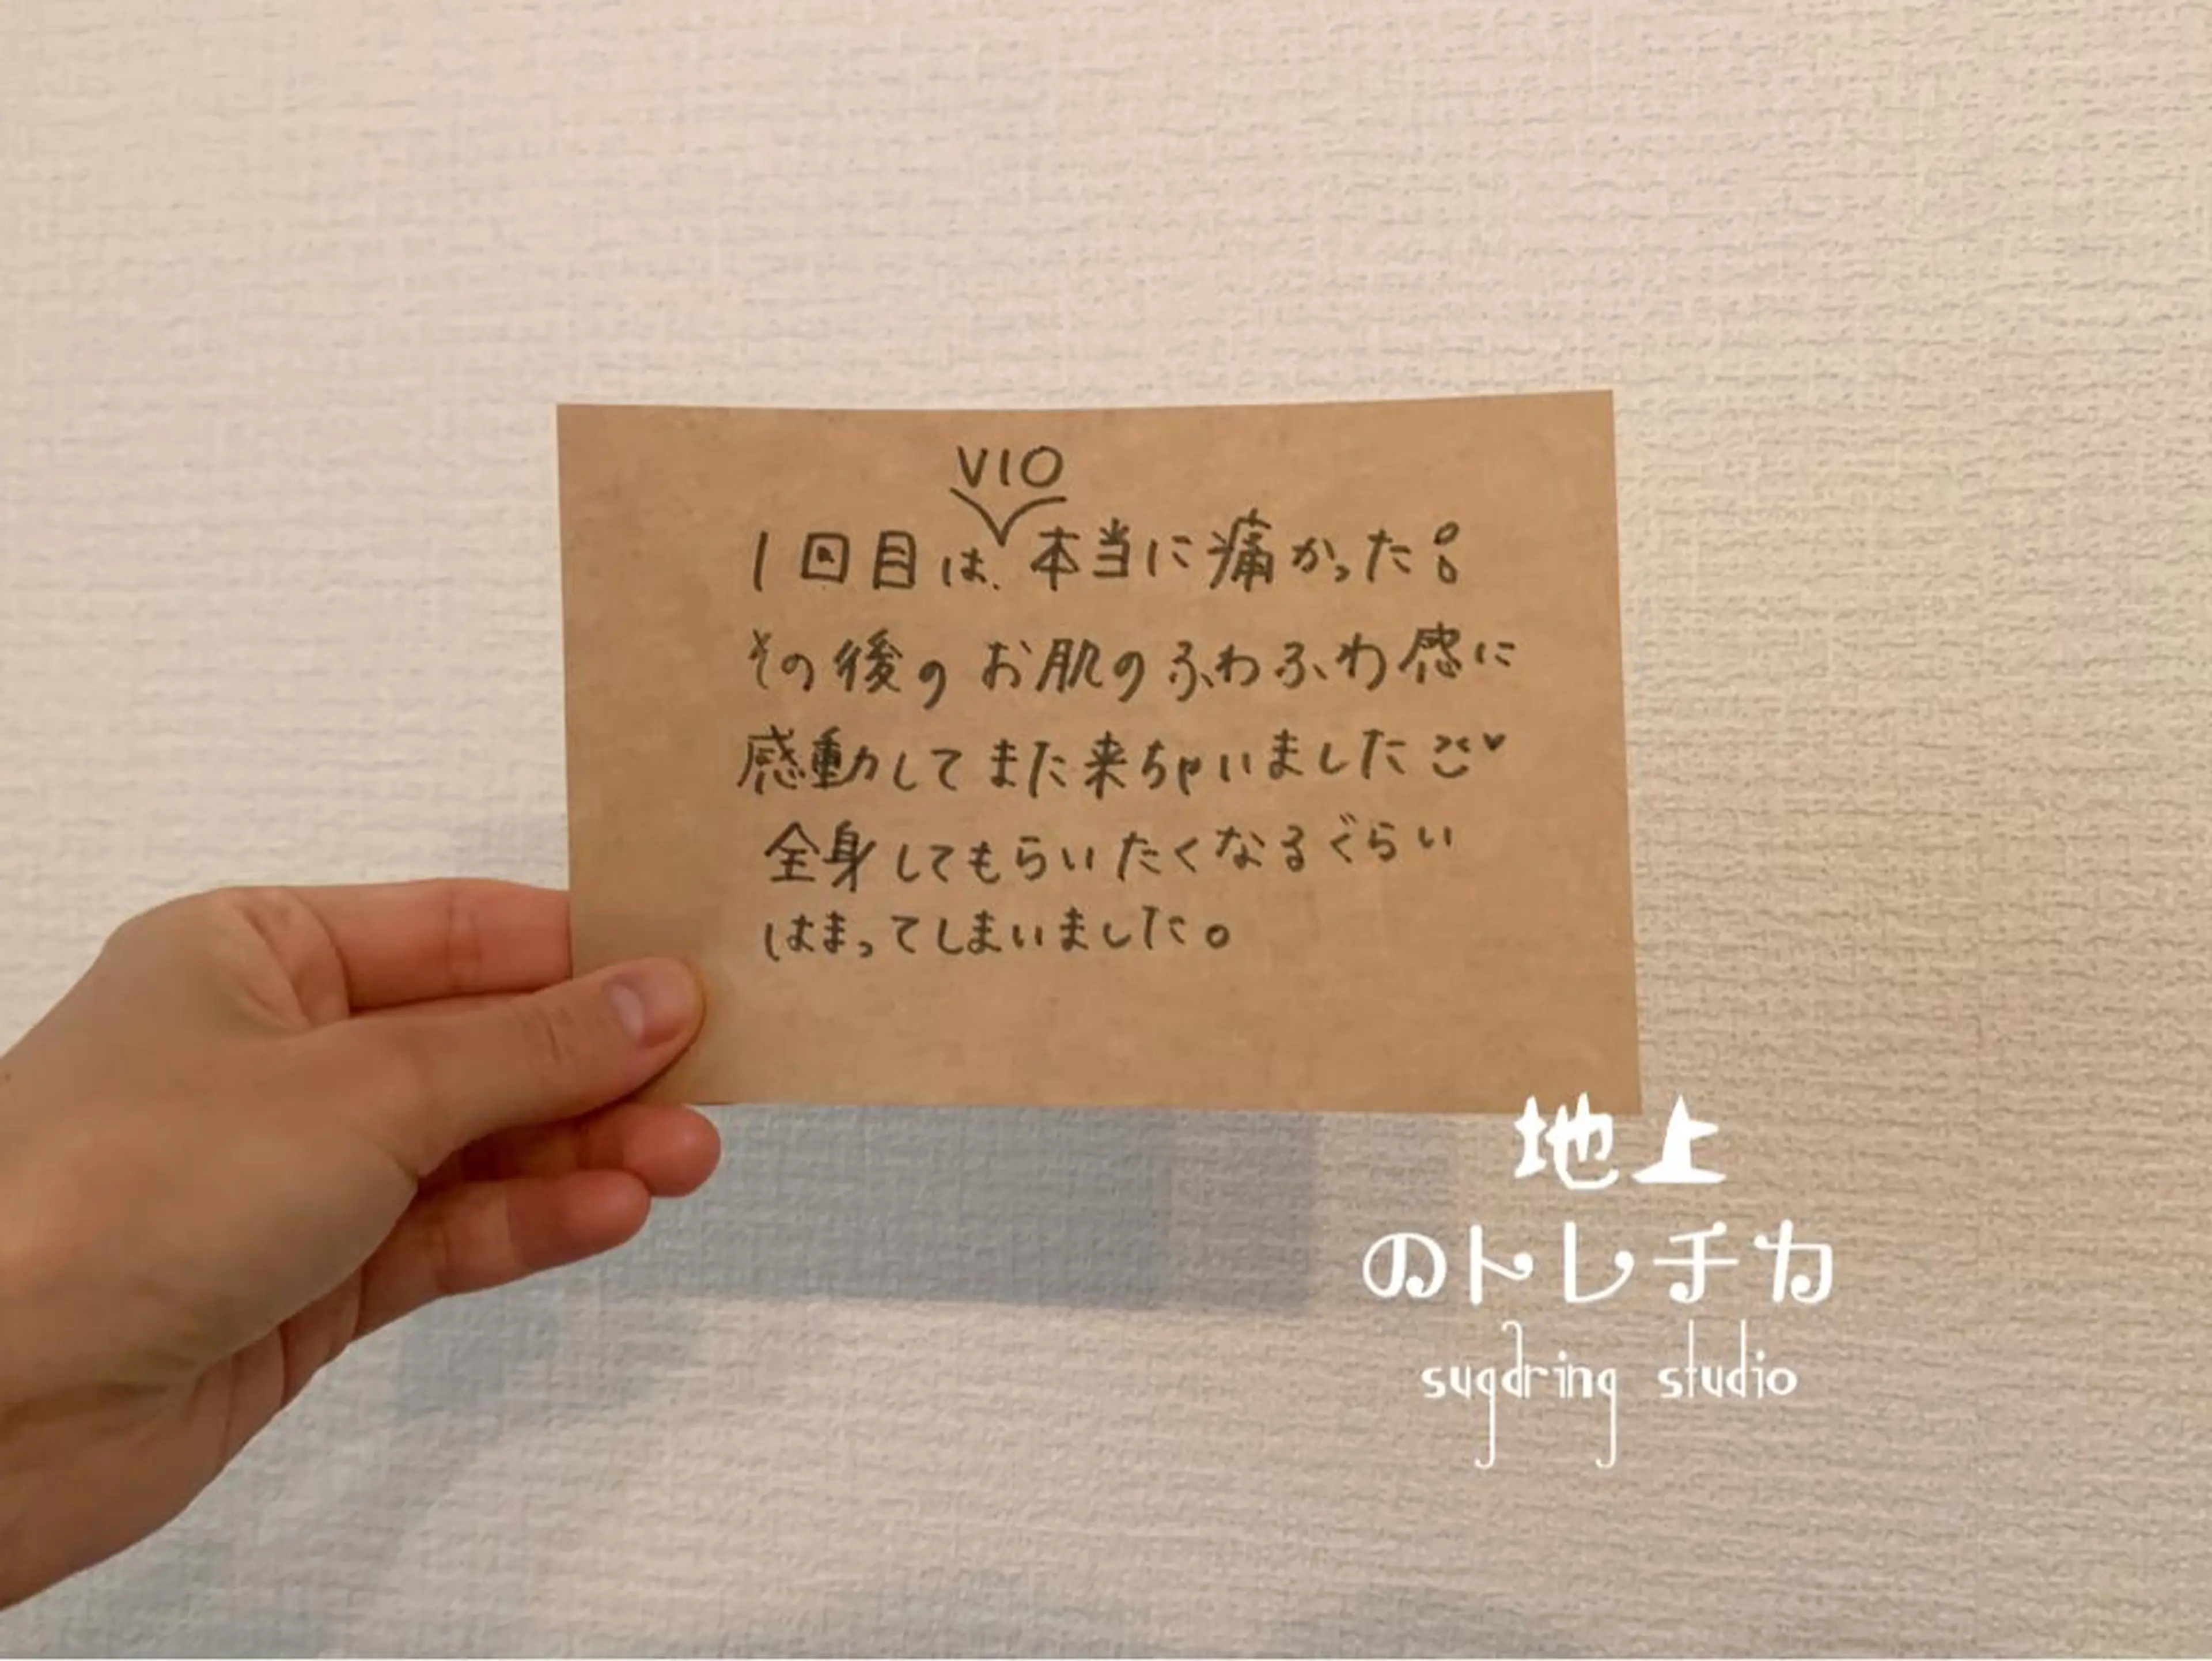 VIO
1回目は、本当に痛かった!
その後のお肌のふわふわ感に
感動してまた来ちゃいました♥
全身してもらいたくなるぐらい
はまってしまいました。
地上
のトレチカ
sugaring studio